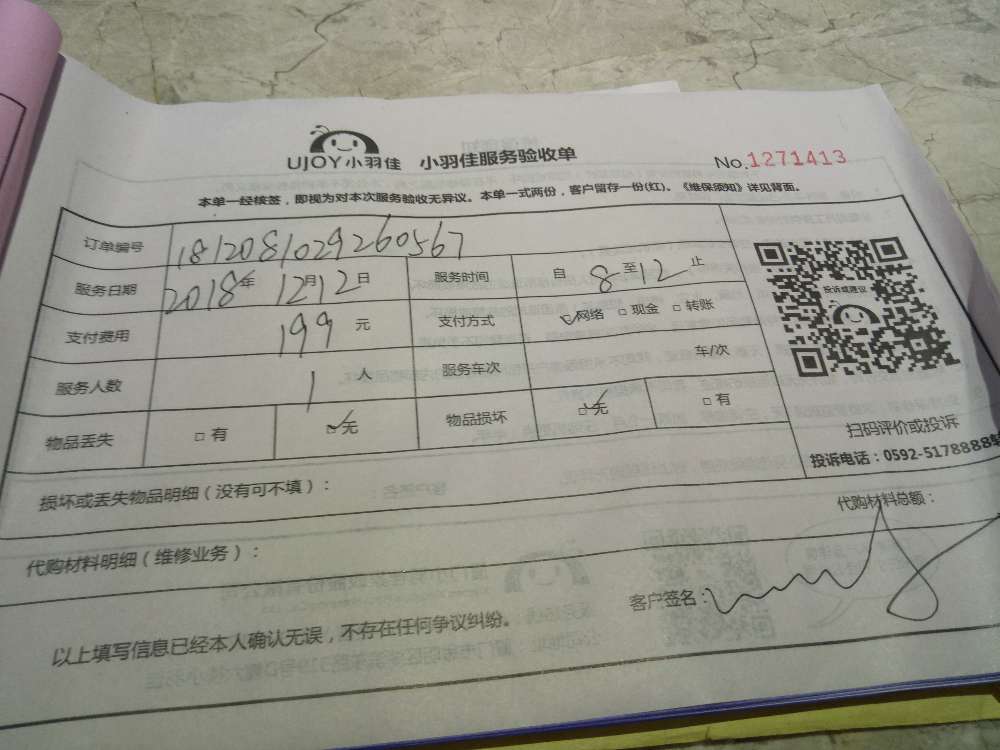 UJOY小羽佳 小羽佳服务验收单 No.1271413
本单一经核签，即视为对本次服务验收无异议。本单一式两份，客户留存一份(红)。《维保须知》详见背面。
订单编号 1812081029260567
服务日期 2018年 12月12日 服务时间 自 8 至 12 止
投诉或建议
支付费用 199 元 支付方式 ☑网络 □现金 □转账
服务人数 1 人 服务车次 车/次
物品丢失 □有 ☑无 物品损坏 ☑无 □有
扫码评价或投诉
投诉电话：0592-5178888
损坏或丢失物品明细（没有可不填）：
代购材料明细（维修业务）： 代购材料总额：
以上填写信息已经本人确认无误，不存在任何争议纠纷。 客户签名：